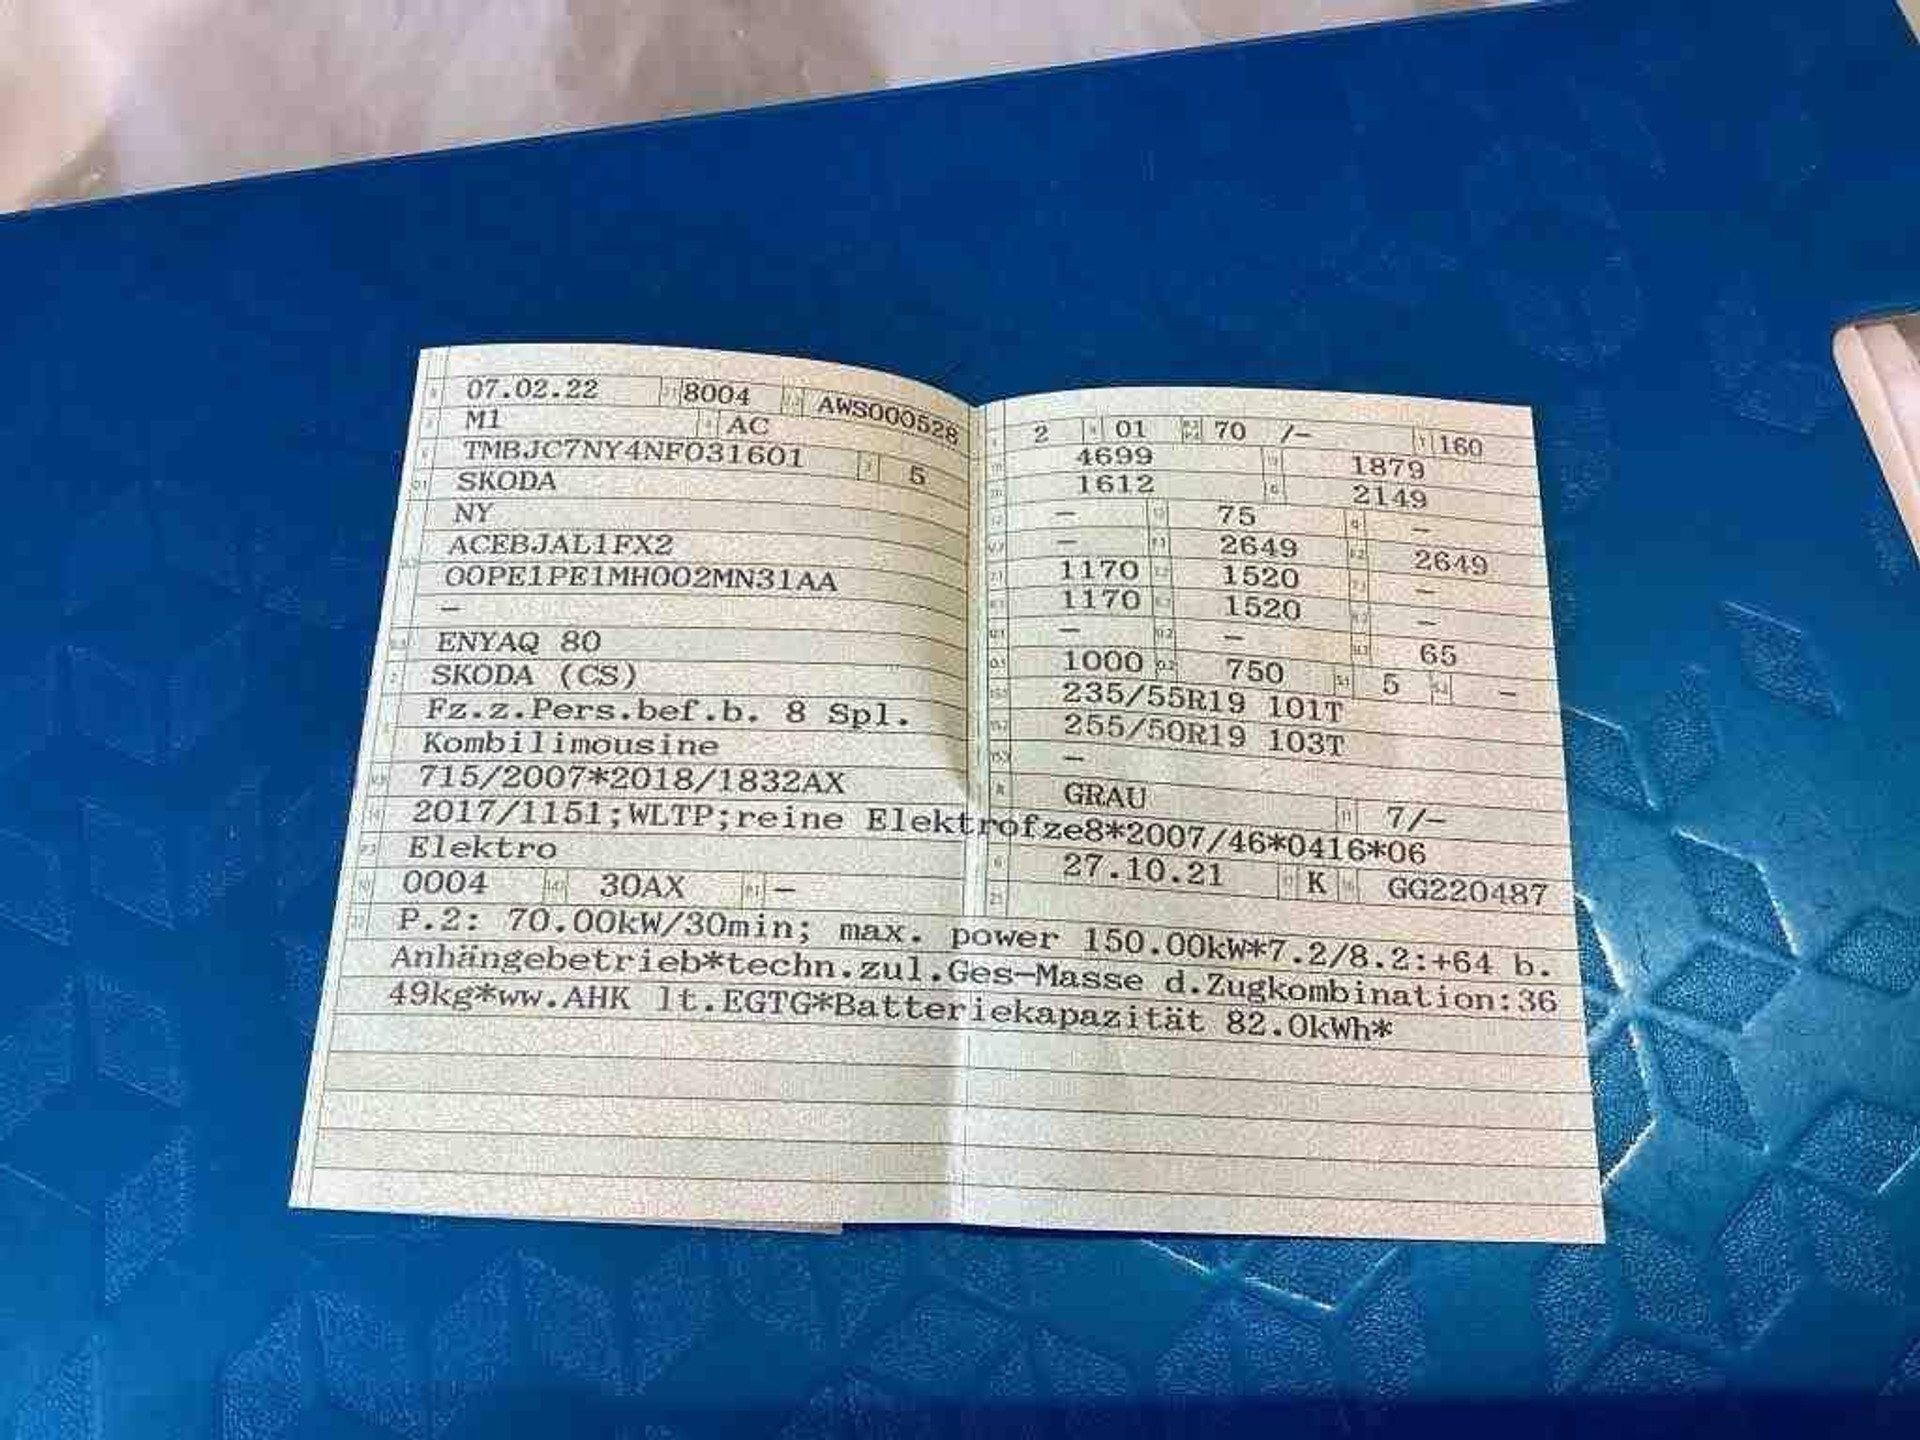 07.02.22 8004 AWS000528
M1 AC
TMBJC7NY4NF031601 5
SKODA
NY
ACEBJAL1FX2
00PE1PE1MH002MN31AA
–
ENYAQ 80
SKODA (CS)
Fz.z.Pers.bef.b. 8 Spl.
Kombilimousine
715/2007*2018/1832AX
2017/1151;WLTP;reine Elektrofze8*2007/46*0416*06
Elektro
0004 30AX –
2 01 70 /– 160
4699 1879
1612 2149
– 75 –
– 2649 2649
1170 1520 –
1170 1520 –
– – 65
1000 750 5 –
235/55R19 101T
255/50R19 103T
–
GRAU 7/–
27.10.21 K GG220487
P.2: 70.00kW/30min; max. power 150.00kW*7.2/8.2:+64 b.
Anhängebetrieb*techn.zul.Ges–Masse d.Zugkombination:36
49kg*ww.AHK lt.EGTG*Batteriekapazität 82.0kWh*